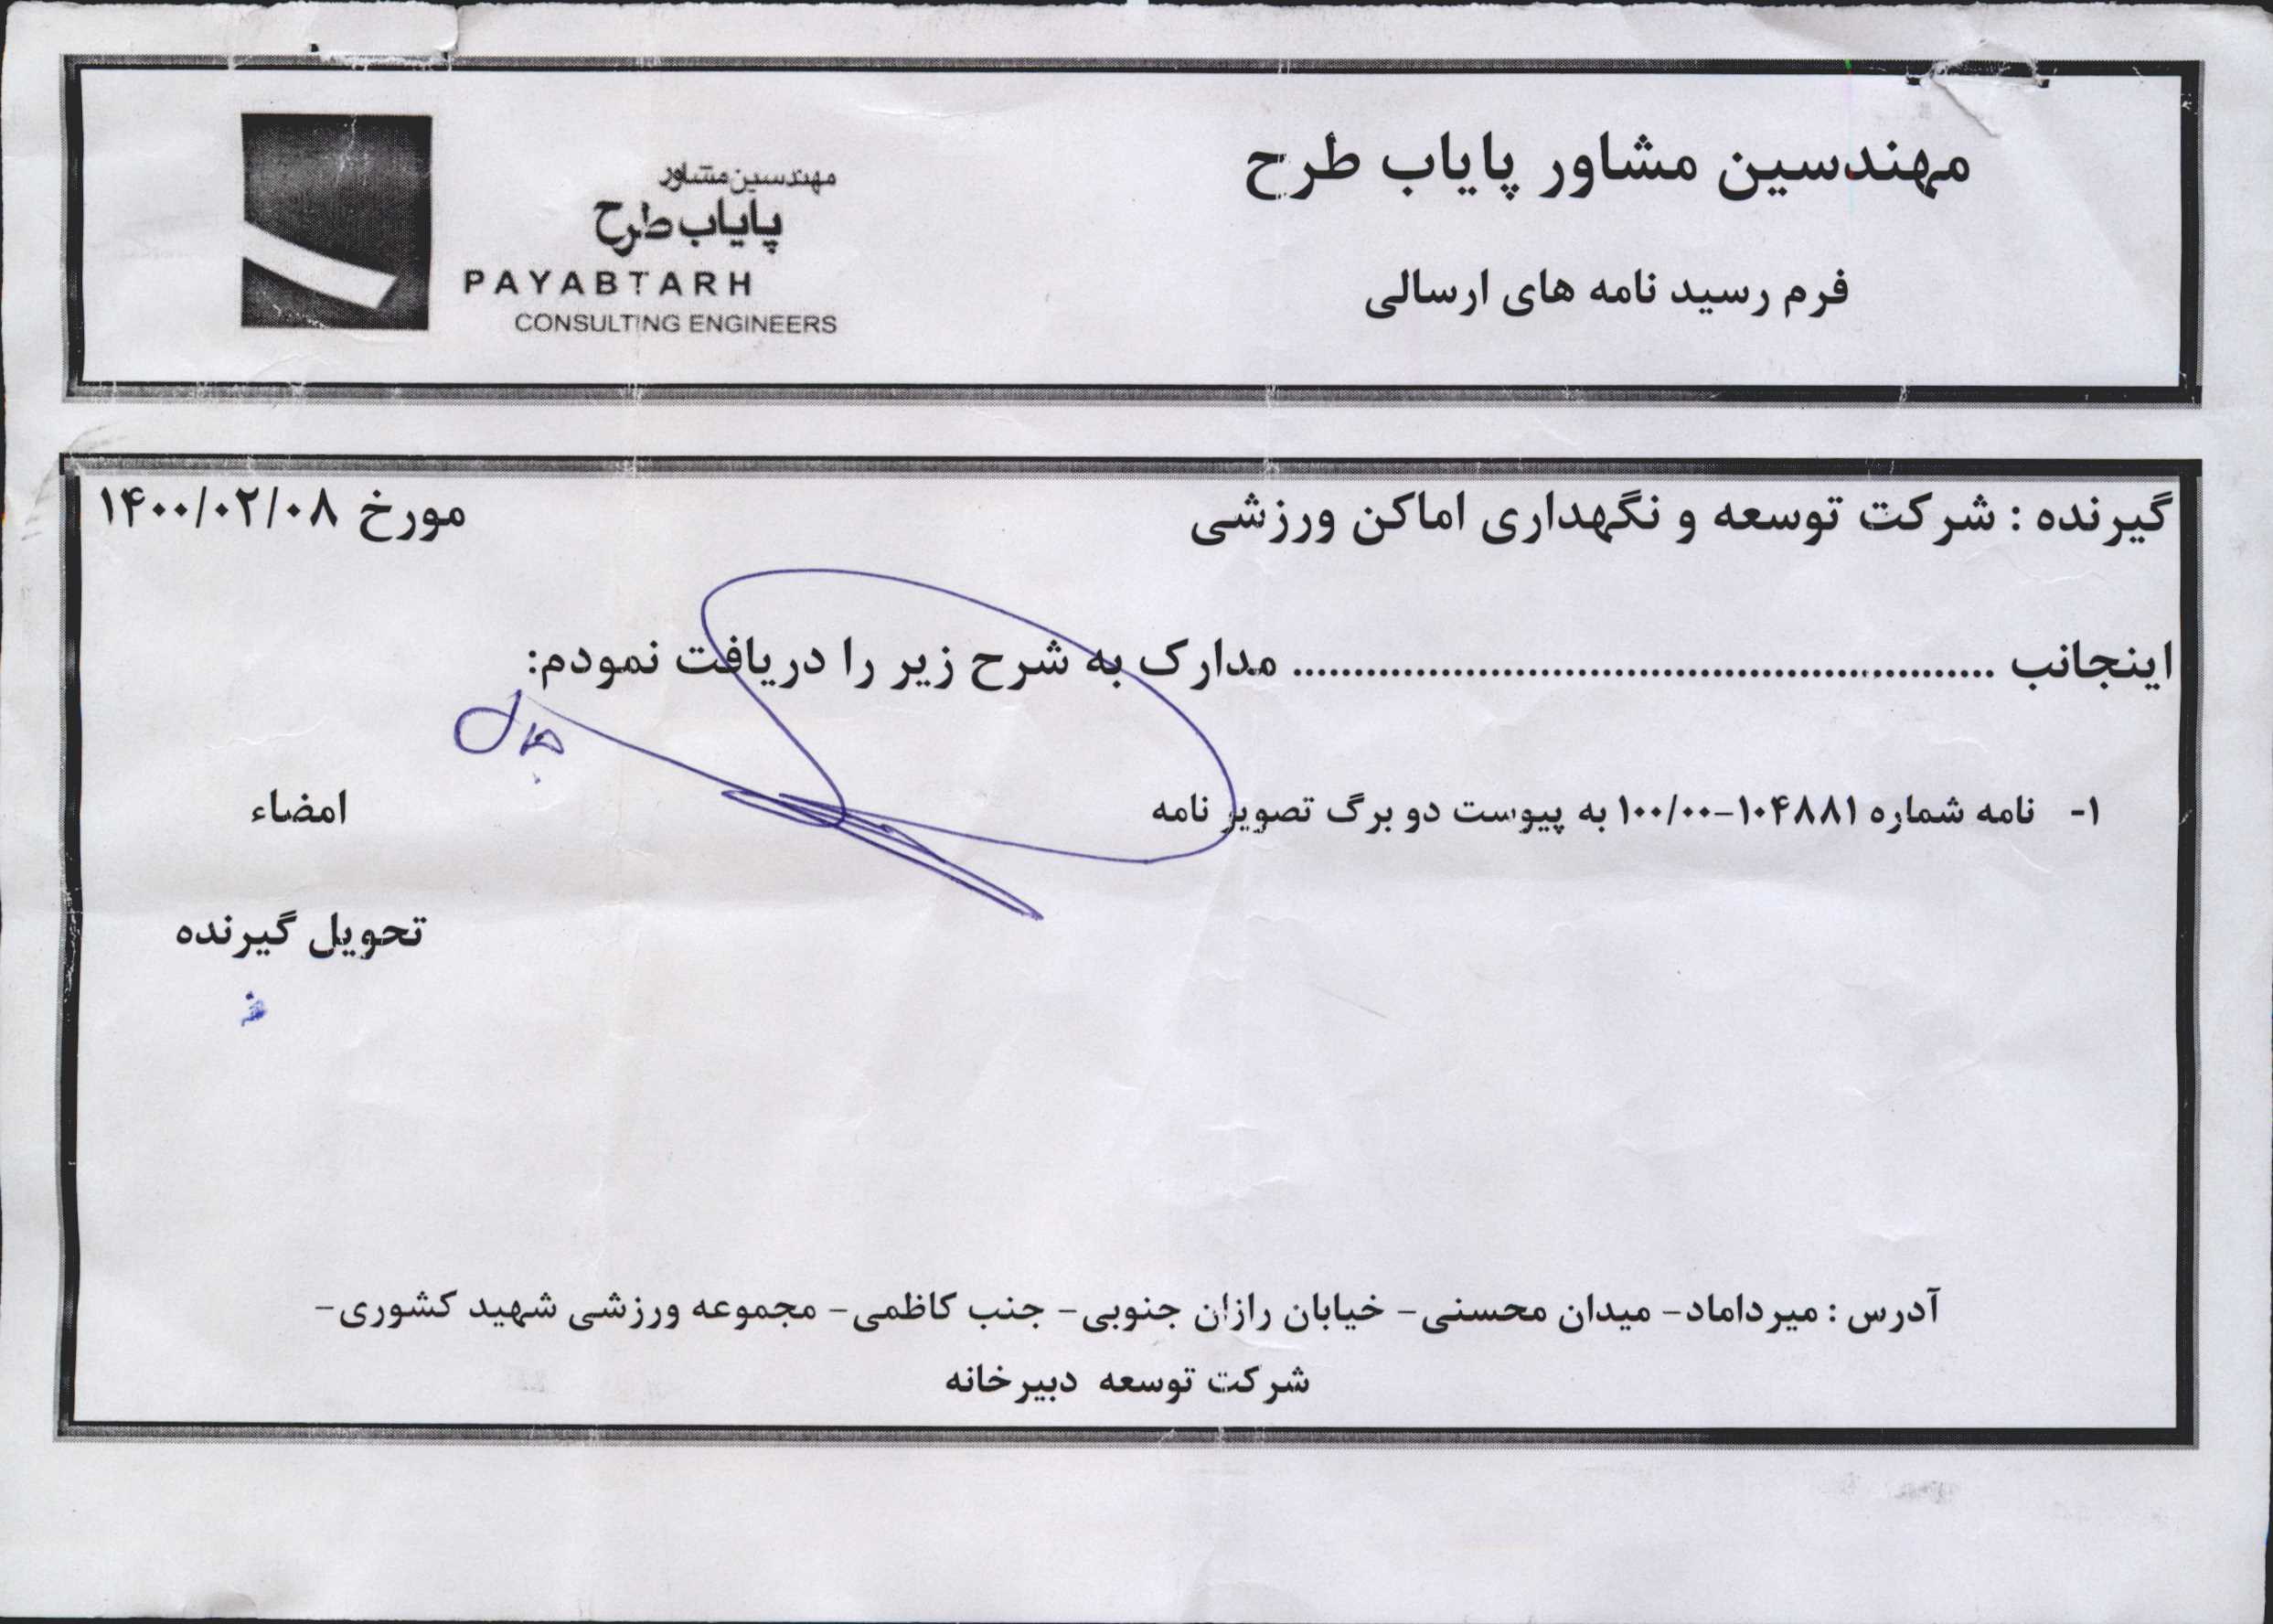 مهندسین مشاور پایاب طرح
فرم رسید نامه های ارسالی
مهندسین مشاور
پایاب طرح
PAYABTARH
CONSULTING ENGINEERS
گیرنده : شرکت توسعه و نگهداری اماکن ورزشی
مورخ ۱۴۰۰/۰۲/۰۸
اینجانب ........................................................ مدارک به شرح زیر را دریافت نمودم:
۱- نامه شماره ۱۰۰/۰۰-۱۰۴۸۸۱ به پیوست دو برگ تصویر نامه
امضاء
تحویل گیرنده
آدرس : میرداماد- میدان محسنی- خیابان رازان جنوبی- جنب کاظمی- مجموعه ورزشی شهید کشوری-
شرکت توسعه دبیرخانه